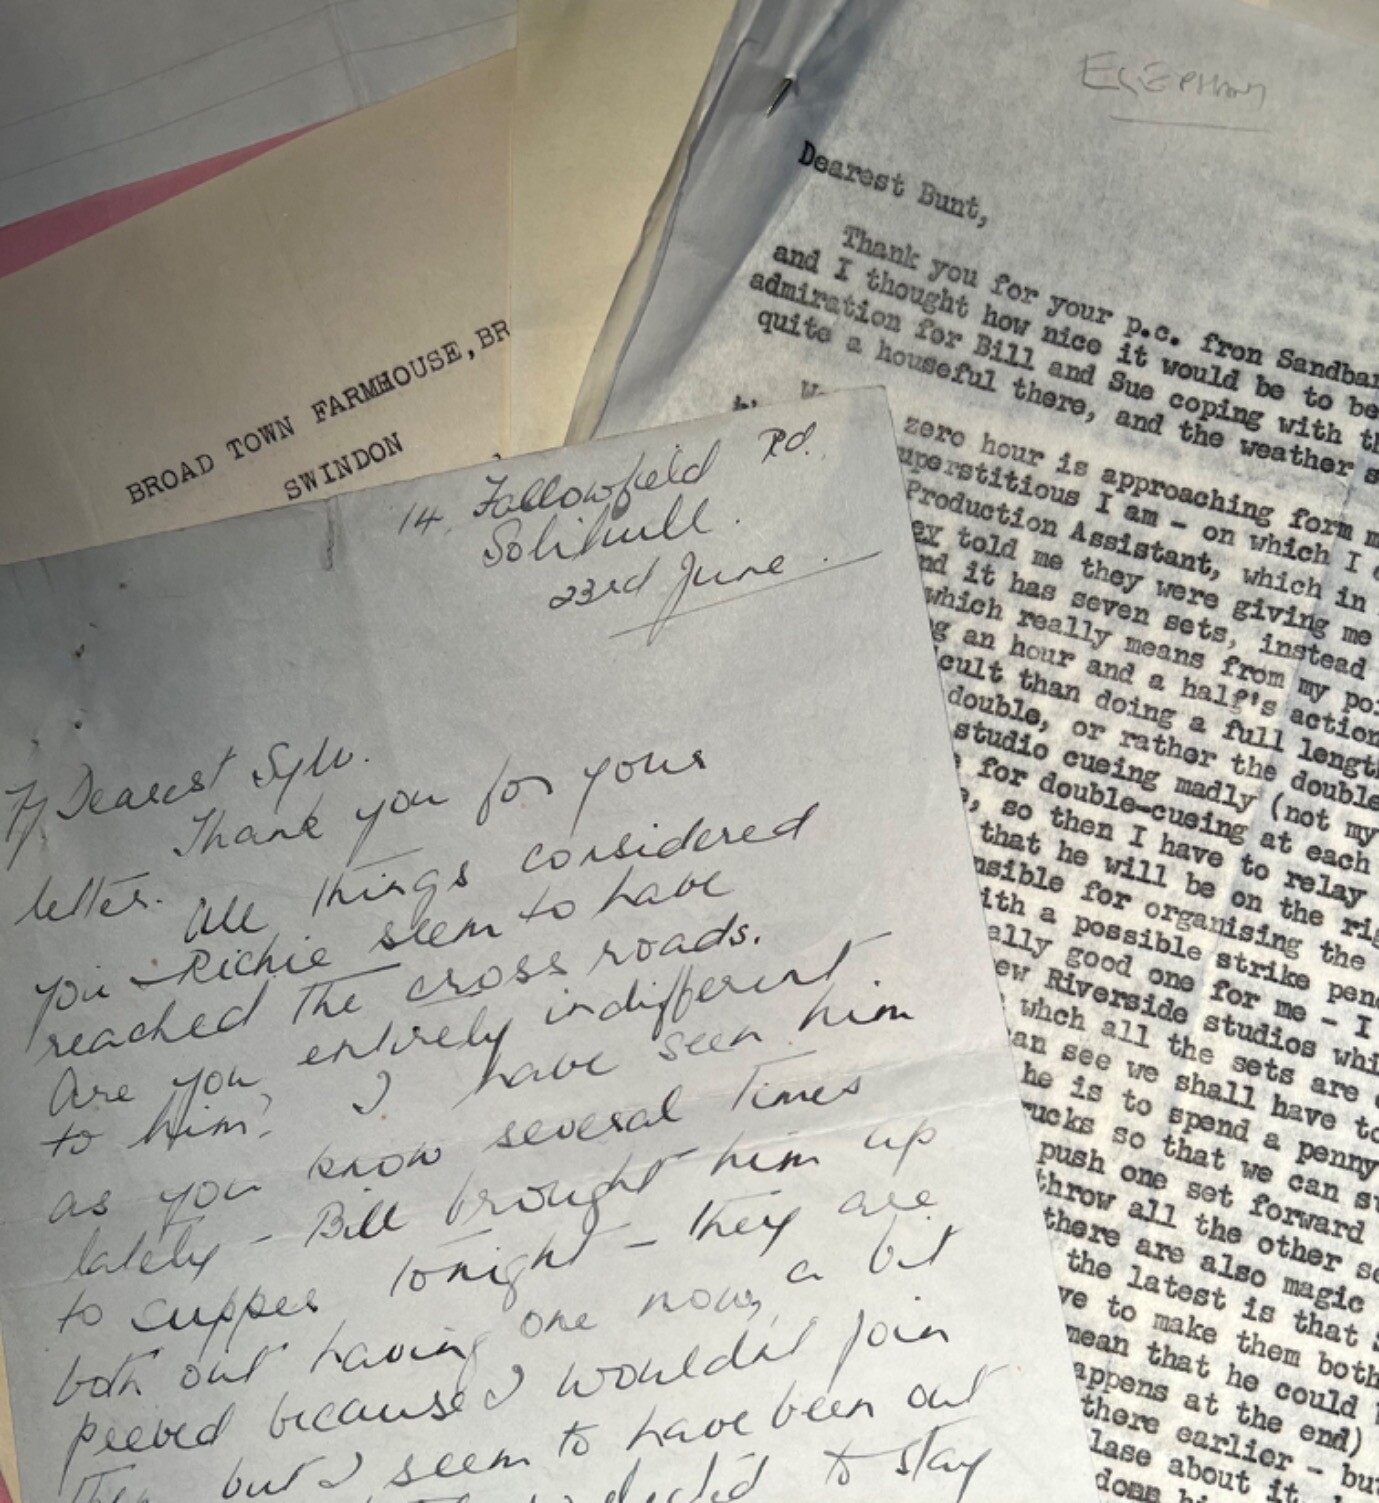 BROAD TOWN FARMHOUSE, BR
SWINDON
Dearest Bunt,
Thank you for your p.c. fron Sandban
and I thought how nice it would be to be
admiration for Bill and Sue coping with th
quite a houseful there, and the weather s
zero hour is approaching form m
uperstitious I am - on which I
Production Assistant, which in
ey told me they were giving me
nd it has seven sets, instead
which really means from my poi
g an hour and a half's action
cult than doing a full length
double, or rather the double
studio cueing madly (not my
for double-cueing at each
, so then I have to relay
that he will be on the rig
nsible for organising the
ith a possible strike pend
ally good one for me - I
ew Riverside studios whi
whch all the sets are
an see we shall have to
he is to spend a penny
rucks so that we can s
push one set forward
throw all the other se
there are also magic
the latest is that
ve to make them both
mean that he could
appens at the end)
there earlier - but
lase about it
14, Fallowfield Rd.
Solihull.
23rd June.
My Dearest Sylv.
Thank you for your
letter. All things considered
you & Richie seem to have
reached the cross roads.
Are you entirely indifferent
to him? I have seen him
as you know several times
lately - Bill brought him up
to supper tonight - they are
both out having one now, a bit
peeved because I wouldnt join
but I seem to have been out
to stay